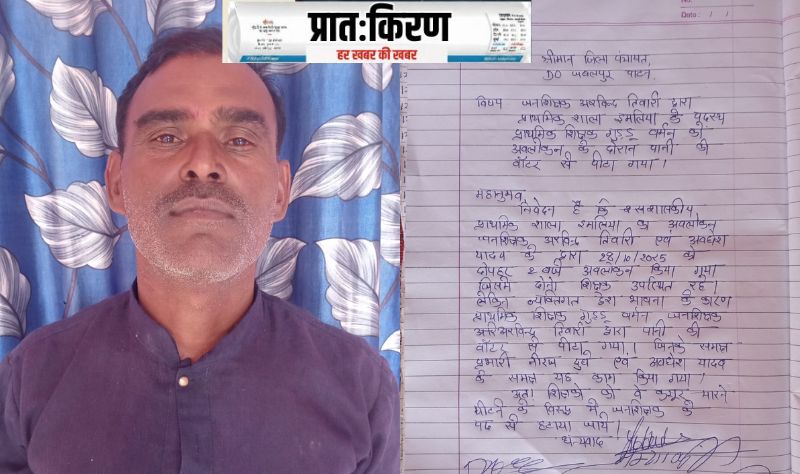 प्रात:किरण
हर खबर की खबर
No:
Date: / /
श्रीमान जिला पंचायत,
DO जबलपुर पाटन,
विषय जनशिक्षक अरविन्द तिवारी द्वारा
प्राथमिक शाला इमलिया के
प्राथमिक शिक्षक गुड्डू वर्मन को
अवलोकन के दौरान पानी की
वॉटर से पीटा गया ।
महानुभव,
निवेदन है कि शासकीय
प्राथमिक शाला इमलिया का अवलोकन
जनशिक्षक अरविन्द तिवारी एवं अवधेश
यादव के द्वारा 28/10/2025 को
दोपहर 2 बजे अवलोकन किया गया
जिसमे दोनो शिक्षक उपस्थित रहे ।
लेकिन व्यक्तिगत द्वेश भावना के कारण
प्राथमिक शिक्षक गुड्डू वर्मन जनशिक्षक
अरविन्द तिवारी द्वारा पानी की
वॉटर से पीटा गया । जिनके समक्ष
प्रभारी नीरज दुबे एवं अवधेश यादव
के समक्ष यह काम किया गया ।
अतः शिक्षको को वे कसूर मारने
पीटने के विरुद्ध में जनशिक्षक के
पद से हटाया जाये ।
धन्यवाद